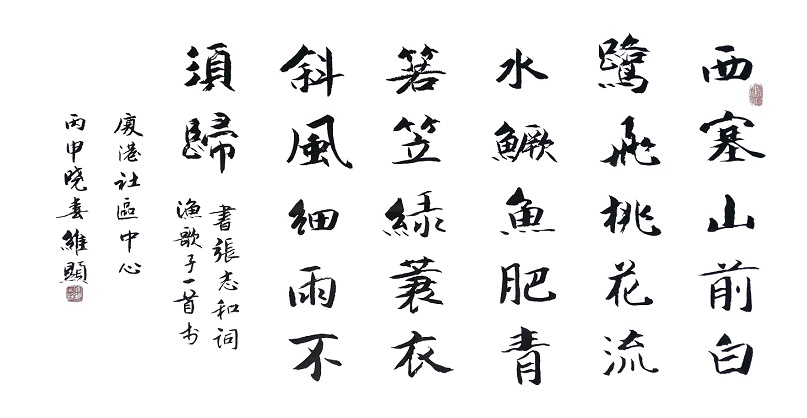 西塞山前白
鷺飛桃花流
水鱖魚肥青
箬笠綠蓑衣
斜風細雨不
須歸
書張志和词
漁歌子一首於
廈港社區中心
丙申晓春維顯